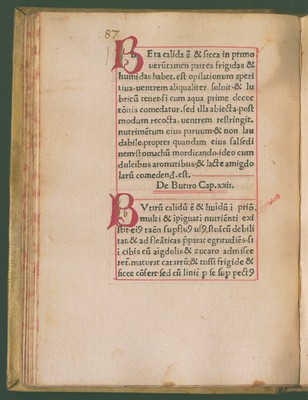 87
BEta calida ē & sicca in primo
uerūtamen partes frigidas &
humidas habet. est opilationum aperi
tiua. uentrem aliqualiter soluit. & lu
bricū tenens si cum aqua prime decoc
tōnis comedatur. sed illa abiecta. post
modum recocta. uentrem restringit.
nutrimētum eius paruum. & non lau
dabile. propter quandam eius salsedi
nem stomachū mordicando. ideo cum
dulcibus aronutibus. & lacte amigdo
larū comedenđ. est.
De Butiro Cap. xxii.
BUtirū calidū ē & huīdū ī prīō.
multi & īpīguati nutrīenti exi
eiꝰ
tat. & ad
ī cibis cū aīgdolis & zucaro admisce
maturat catarrū. & tussi frigide &
sicce cōfert. sed cū p se sup pectꝰ